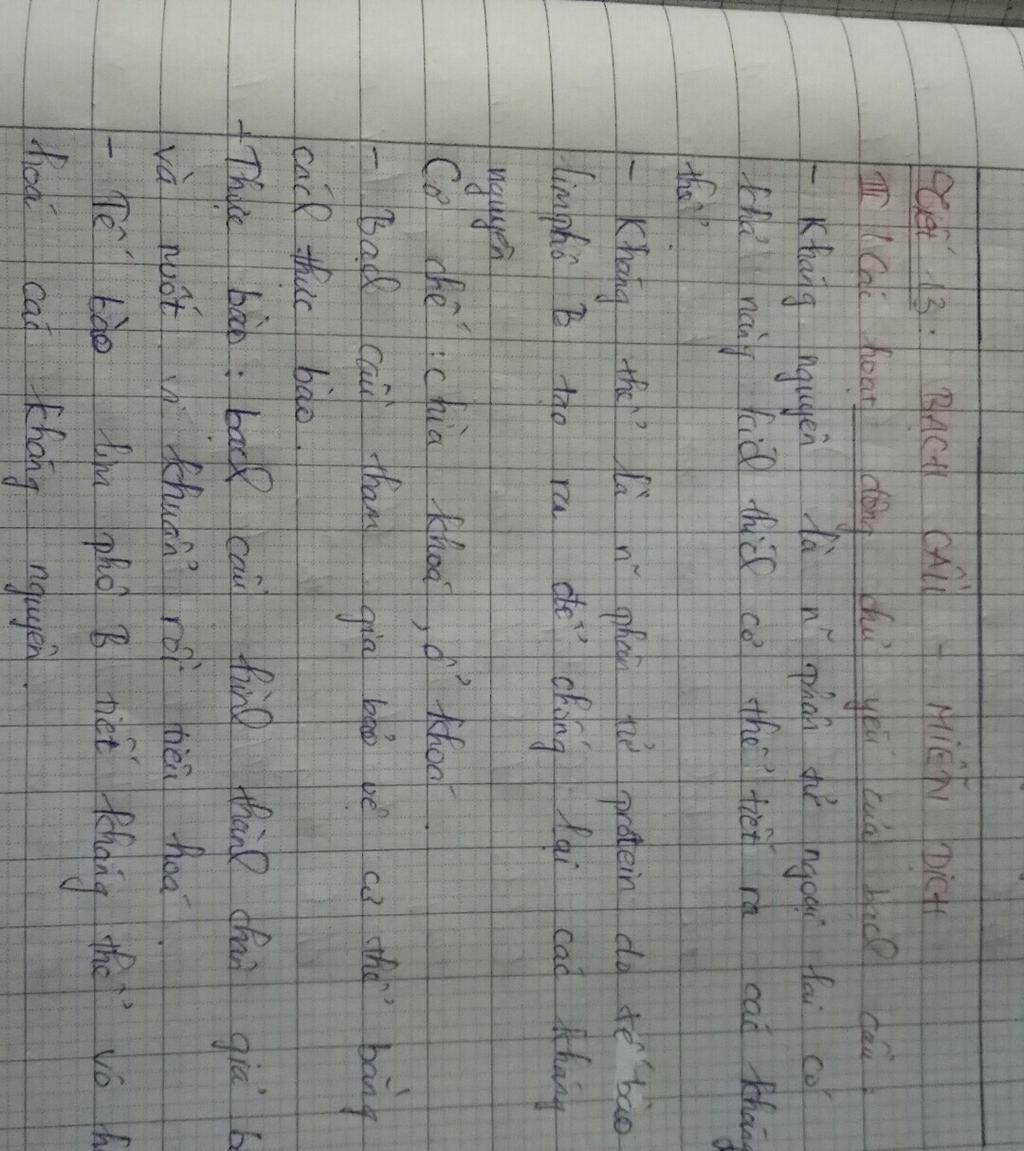 Tiết 13: BẠCH CẦU - MIỄN DỊCH
III / Các hoạt động chủ yếu của bạch cầu :
- Kháng nguyên là n~ phân tử ngoại lai có
khả năng kích thích cơ thể tiết ra các kháng
thể.
- Kháng thể là n~ phân tử protein do tế bào
limphô B tạo ra để chống lại các kháng
nguyên
Cơ chế : chìa khoá, ổ khoá.
- Bạch cầu tham gia bảo vệ cơ thể bằng
cách thực bào.
+ Thực bào : bạch cầu hình thành chân giả b
và nuốt vi khuẩn rồi tiêu hoá.
- Tế bào lim phô B tiết kháng thể vô h
hoá các kháng nguyên.